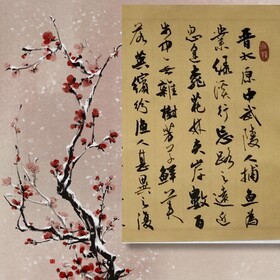 晉太原中武陵人捕魚為
業緣溪行忘路之遠近
忽逢桃花林夾岸數百
步中無雜樹芳草鮮美
落英繽紛漁人甚異之復